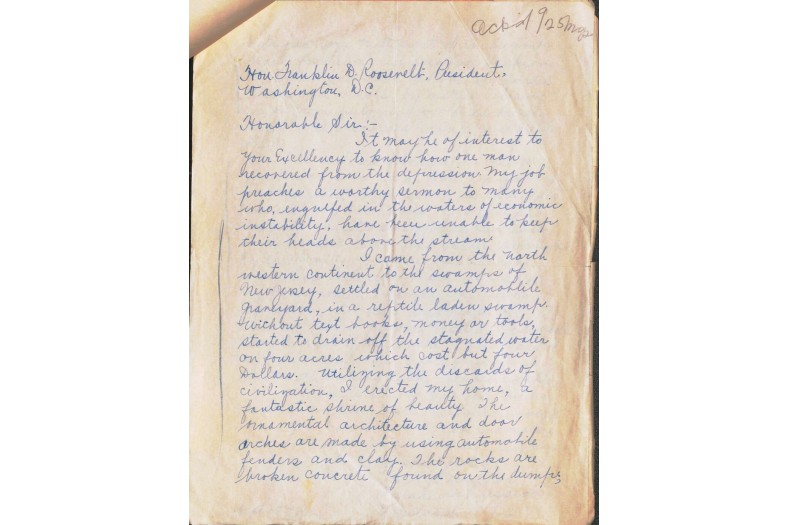 ack'd 9/25
Hon. Franklin D. Roosevelt, President,
Washington, D.C.
Honorable Sir:-
It may be of interest to
Your Excellency to know how one man
recovered from the depression. My job
preaches a worthy sermon to many
who, engulfed in the waters of economic
instability, have been unable to keep
their heads above the stream.
I came from the north
western continent to the swamps of
New Jersey, settled on an automobile
graveyard, in a reptile laden swamp.
Without text books, money or tools,
started to drain off the stagnated water
on four acres which cost but four
Dollars. Utilizing the discards of
civilization, I erected my home, a
fantastic shrine of beauty. The
ornamental architecture and door
arches are made by using automobile
fenders and clay. The rocks are
broken concrete found on the dumps